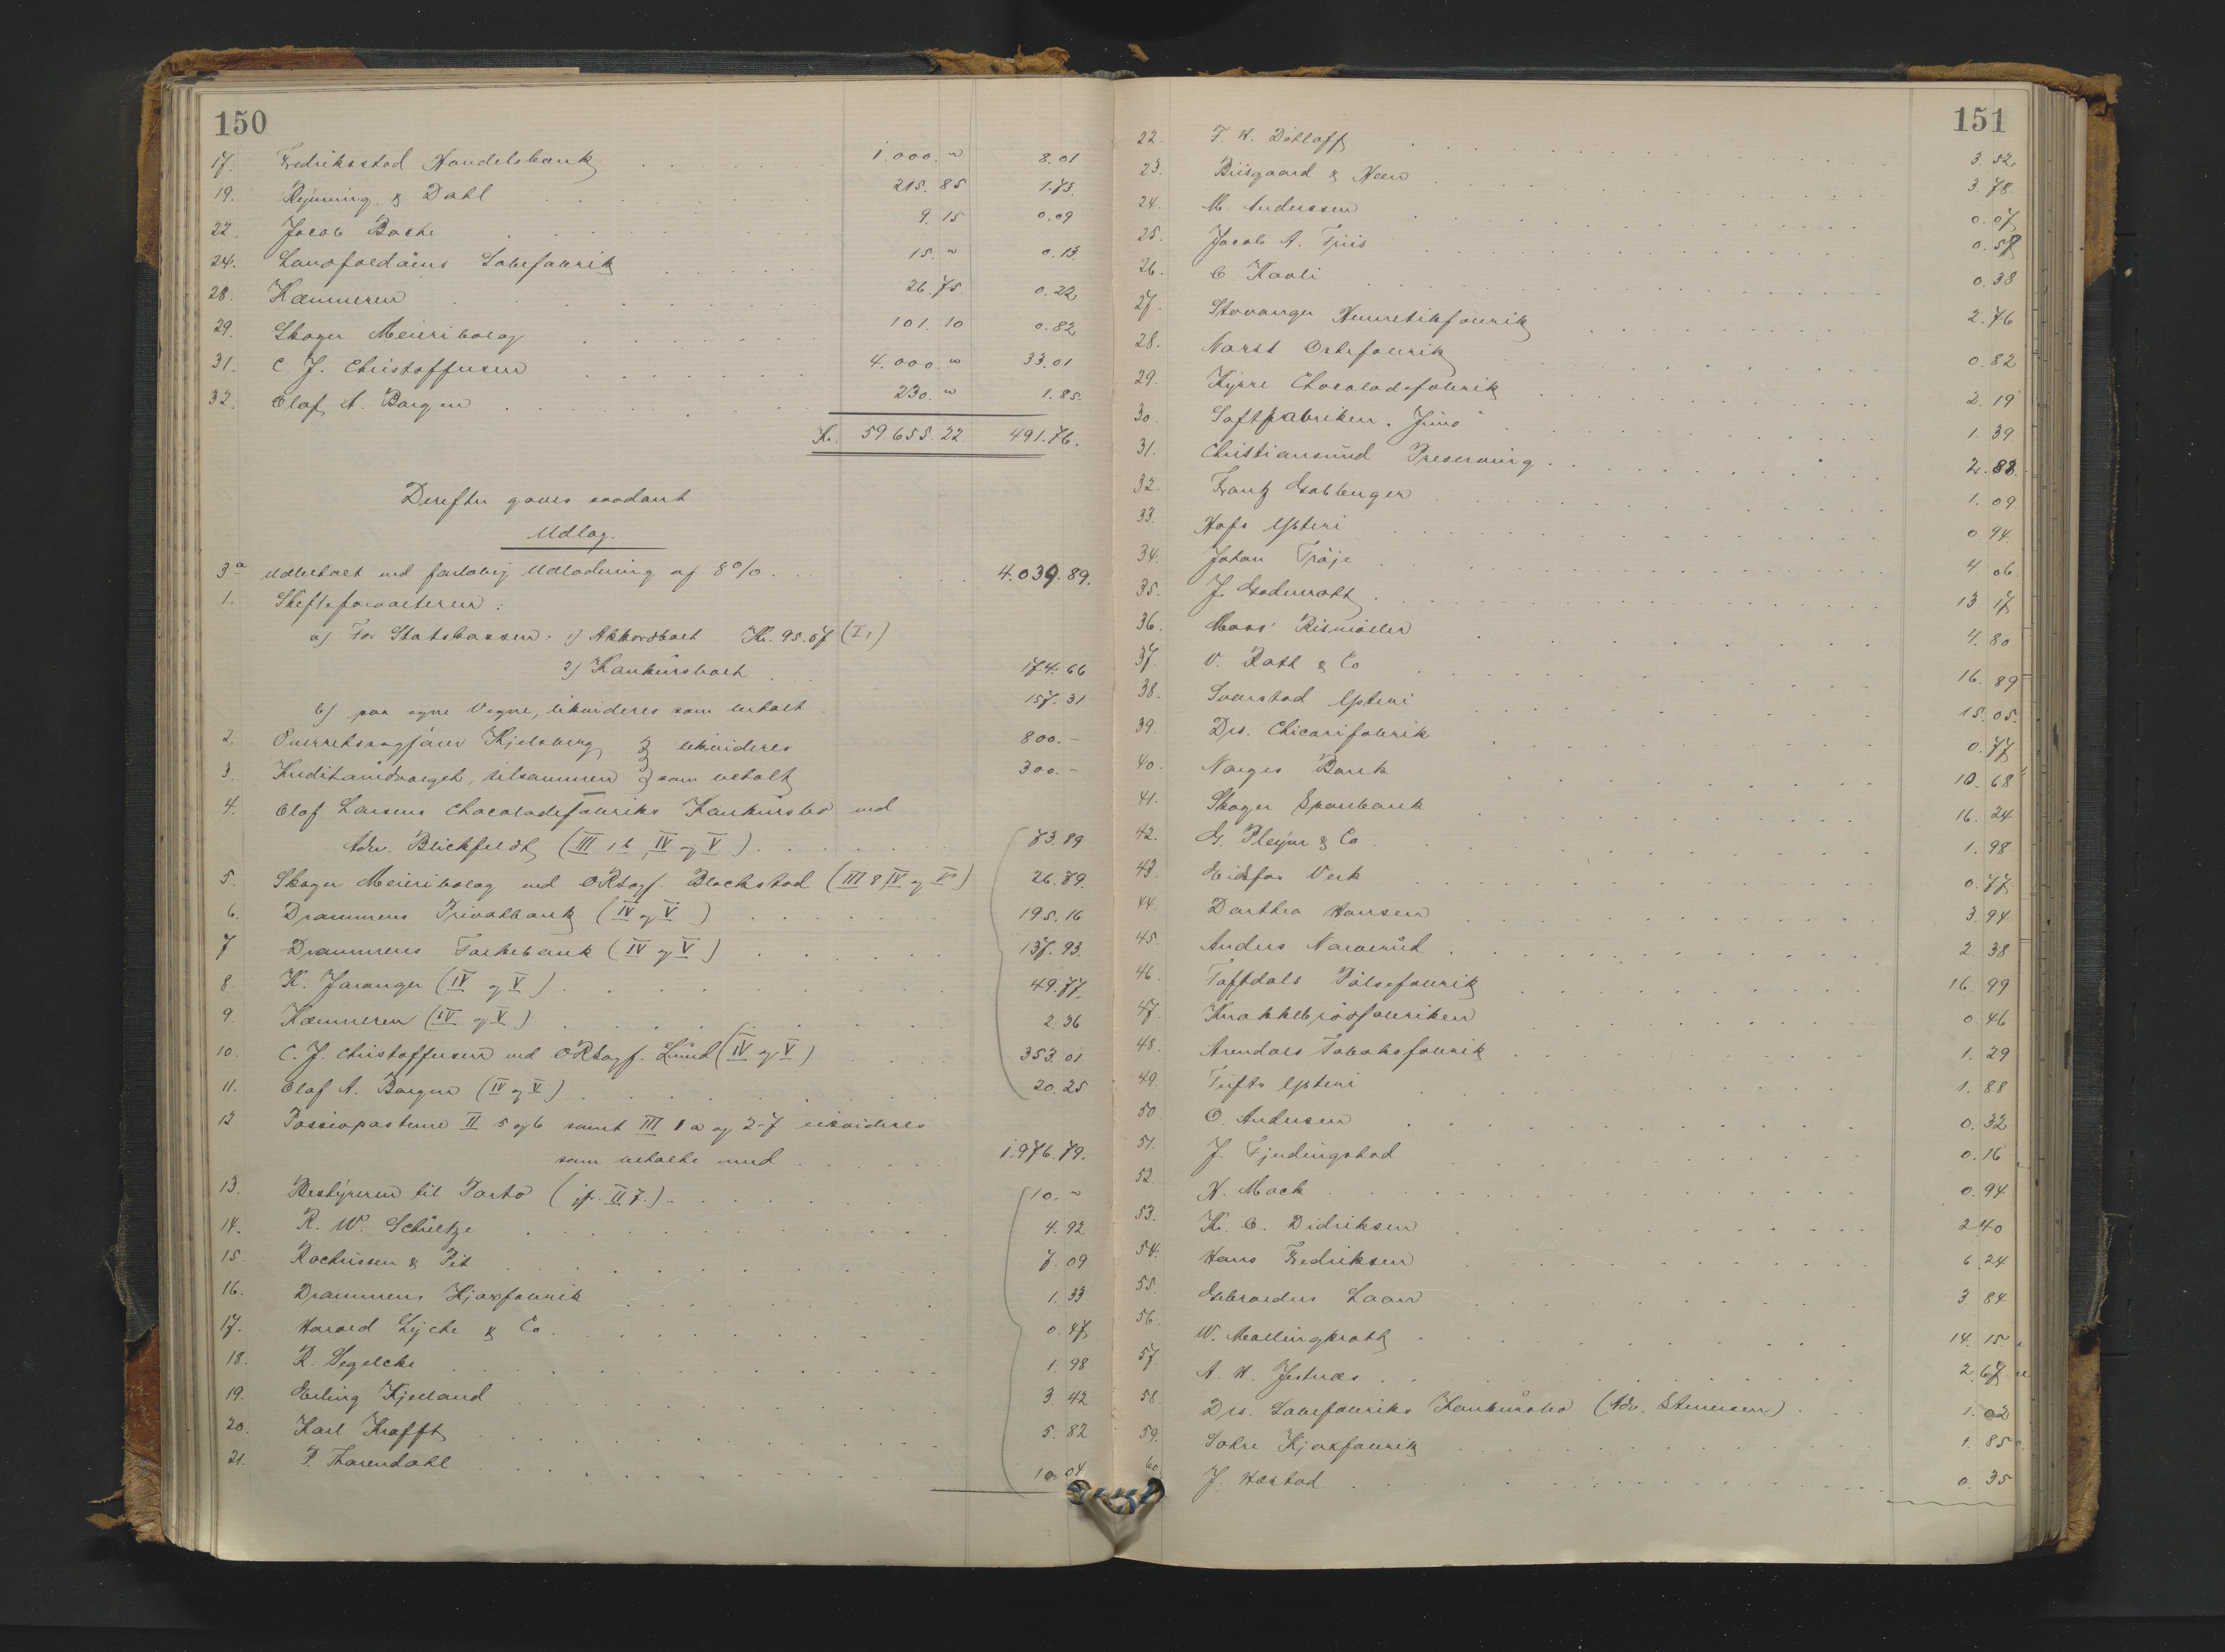 150
17. Fredriksstad Handelsbank . . . 1.000. " 8.01
19. Rynning & Dahl . . . 215.85 1.73.
22. Jacob Bache . . . 9.15 0.09
24. Sandfoldåens Sæbefabrik . . . 15. " 0.13
28. Kæmneren . . . 26.75. 0.22
29. Skoger Meieribolag . . . 101.10 0.82
31. C. J. Christoffersen . . . 4.000. " 33.01
32. Olaf A. Borgen . . . 230. " 1.85.
Kr. 59.655.22. 491.76.
Derefter gaves saadant
Udlæg.
3a Udbetalt ved foreløbig Udlodning af 8% . . . 4.039.89.
1. Skifteforvalteren:
a) For Statskassen: 1) Akkordboet Kr. 95.07 (I,1)
2) Konkursboet . . . 174.66
b) paa egne Vegne, likvideres som betalt . 157.31
2. Overretssagfører Kjelsberg } likvideres 800.-
3. Kreditorudvalget, tilsammen } som betalt 300.-
4. Olaf Larsens Chocoladefabriks Konkursbo ved
Adv. Blichfeldt (III 1b, IV og V) . . . 73.89
5. Skoger Meieribolag ved ORsagf. Blackstad (III 8 IV og V) 26.79.
6. Drammens Privatbank (IV og V) . . . 195.16
7 Drammens Folkebank (IV og V) . . . 137.93.
8. K. Jaranger (IV og V) . . . 49.77.
9. Kæmneren (IV og V) . . . 2.36
10. C. J. Christoffersen ved ORsagf. Lund (IV og V) . . . 353.01
11. Olaf A. Borgen (IV og V) . . . 20.25
12 Passivposterne II 5 og 6 samt III 1 a og 2-7 likvideres
som betalte med . . . 1.976.79.
13. Bestyreren til Porto (jf. II 7.) . . . 10. "
14. R. W. Schultze . . . 4.92
15. Rochussen & Pit . . . 7.09
16. Drammens Kjæxfabrik . . . 1.33
17. Harald Lyche & Co. . . . 0.47
18. R. Segelcke . . . 1.98
19. Erling Kjelland . . . 3.42
20. Karl Krafft . . . 5.82
21. P. Thorendahl . . . 10.04
151
22. F. W. Ditloff . . . 3.52
23. Biisgaard & Heen . . . 3.78.
24. M. Anderssen . . . 0.07
25. Jacob A. Friis . . . 0.58
26. O. Kavli . . . 0.38
27. Stavanger Hermetikfabrik . . . 2.76
28. Norsk Ostefabrik . . . 0.82
29. Kyrre Chocoladefabrik . . . 2.19
30 Saftfabriken "Juno" . . . 1.39
31. Christiansund Preserving . . . 2.88.
32. Frantz . . . 1.09
33. Hofs Ysteri . . . 0.94.
34. Johan Trøje . . . 4.06.
35. J. . . . 13.17
36. Moss Rismøller . . . 4.80
37. V. Roll & Co . . . 16.89
38. Svarstad Ysteri . . . 15.05.
39. Drs. Chicorifabrik . . . 0.77
40. Norges Bank . . . 10.68
41. Skoger Sparebank . . . 16.24
42. G. Pleym & Co . . . 1.98
43. Eidsfos Verk . . . 0.77
44. Dorthea Hansen . . . 3.94
45. Anders Narverud . . . 2.38
46. Toftdals Pølsefabrik . . . 16.99
47. Knækkebrødfabriken . . . 0.46
48. Arendals Tobaksfabrik . . . 1.29
49. Tufts Ysteri . . . 1.88
50. O. Andersen . . . 0.32
51. J. Tjudingstad . . . 0.16
52. H. Mack . . . 0.94
53. K. O. Didriksen . . . 2.40
54. Hans Fredriksen . . . 6.24
55. Gebroeders Laan . . . 3.84
56. W. Mallingkrott . . . 14.15.
57. A. H. Jestnæs . . . 2.67
58. Drs. Sæbefabriks Konkursbo (Adv. Stenersen) . . . 1.02
59. Sohre Kjæxfabrik . . . 1.85
60. J. Hæstad . . . 0.35